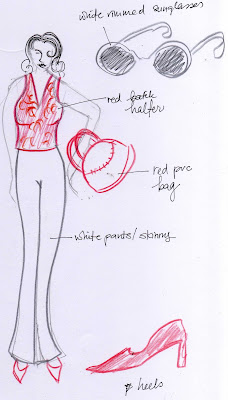 white rimmed sunglasses
red
halter
red pvc
bag
white pants/skinny
heels